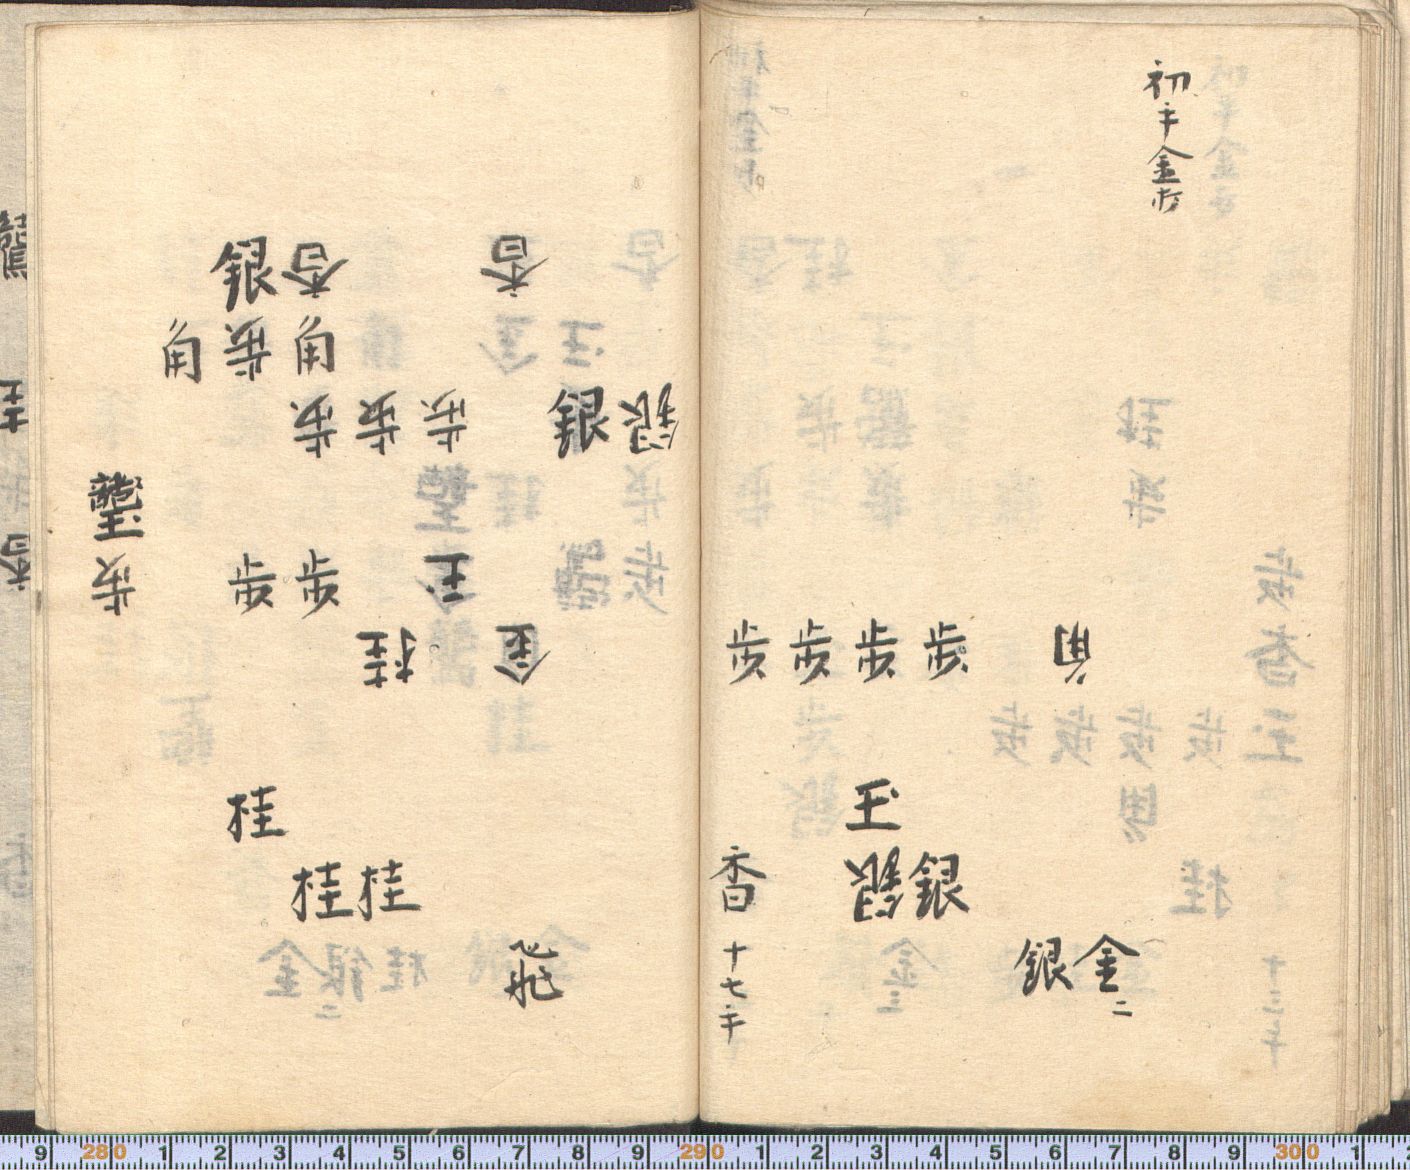 初手金打
桂
歩
歩 歩 歩 歩 角
玉
香 銀 銀
十七手
銀 金二
銀 香 香
角 歩 角
歩 歩 歩 銀 銀
玉
歩 歩 歩 玉
桂 金
桂
桂 桂
飛
9 280 1 2 3 4 5 6 7 8 9 290 1 2 3 4 5 6 7 8 9 300 1 2